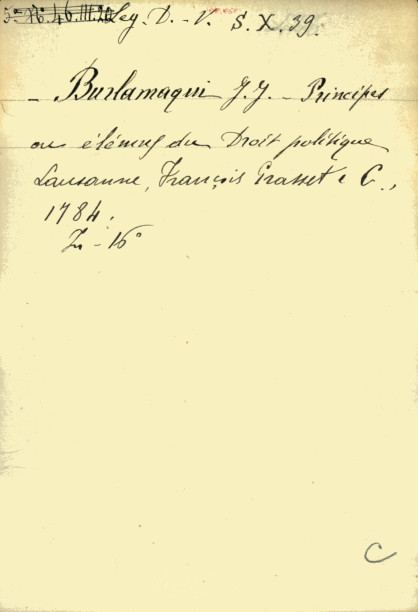 Ley. D. - V. S. X. 39
- Burlamaqui J. J. - Principes
ou élémens du Droit politique
Lausanne, François Grasset e C.,
1784.
In - 16°
C